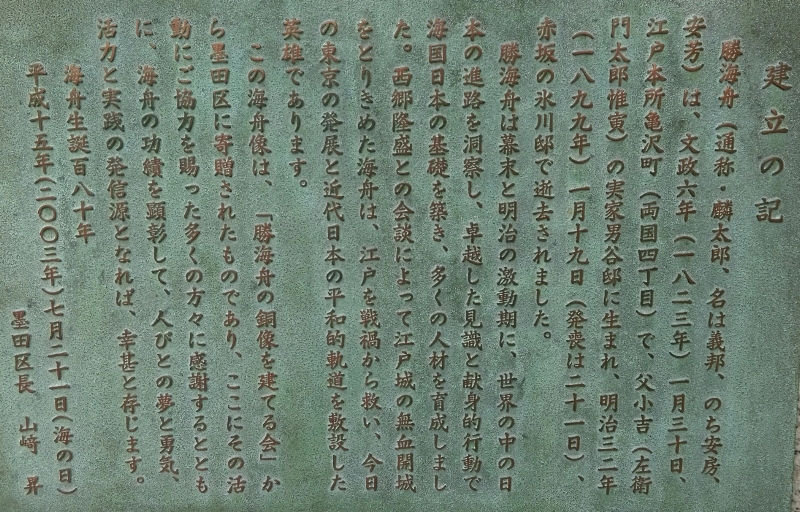 建立の記
勝海舟（通称・麟太郎、名は義邦、のち安房、
安芳）は、文政六年（一八二三年）一月三十日、
江戸本所亀沢町（両国四丁目）で、父小吉（左衛
門太郎惟寅）の実家男谷邸に生まれ、明治三二年
（一八九九年）一月十九日（発喪は二十一日）、
赤坂の氷川邸で逝去されました。
勝海舟は幕末と明治の激動期に、世界の中の日
本の進路を洞察し、卓越した見識と献身的行動で
海国日本の基礎を築き、多くの人材を育成しまし
た。西郷隆盛との会談によって江戸城の無血開城
をとりきめた海舟は、江戸を戦禍から救い、今日
の東京の発展と近代日本の平和的軌道を敷設した
英雄であります。
この海舟像は、「勝海舟の銅像を建てる会」か
ら墨田区に寄贈されたものであり、ここにその活
動にご協力を賜った多くの方々に感謝するととも
に、海舟の功績を顕彰して、人びとの夢と勇気、
活力と実践の発信源となれば、幸甚と存じます。
海舟生誕百八十年
平成十五年（二〇〇三年）七月二十一日（海の日）
墨田区長　山﨑　昇